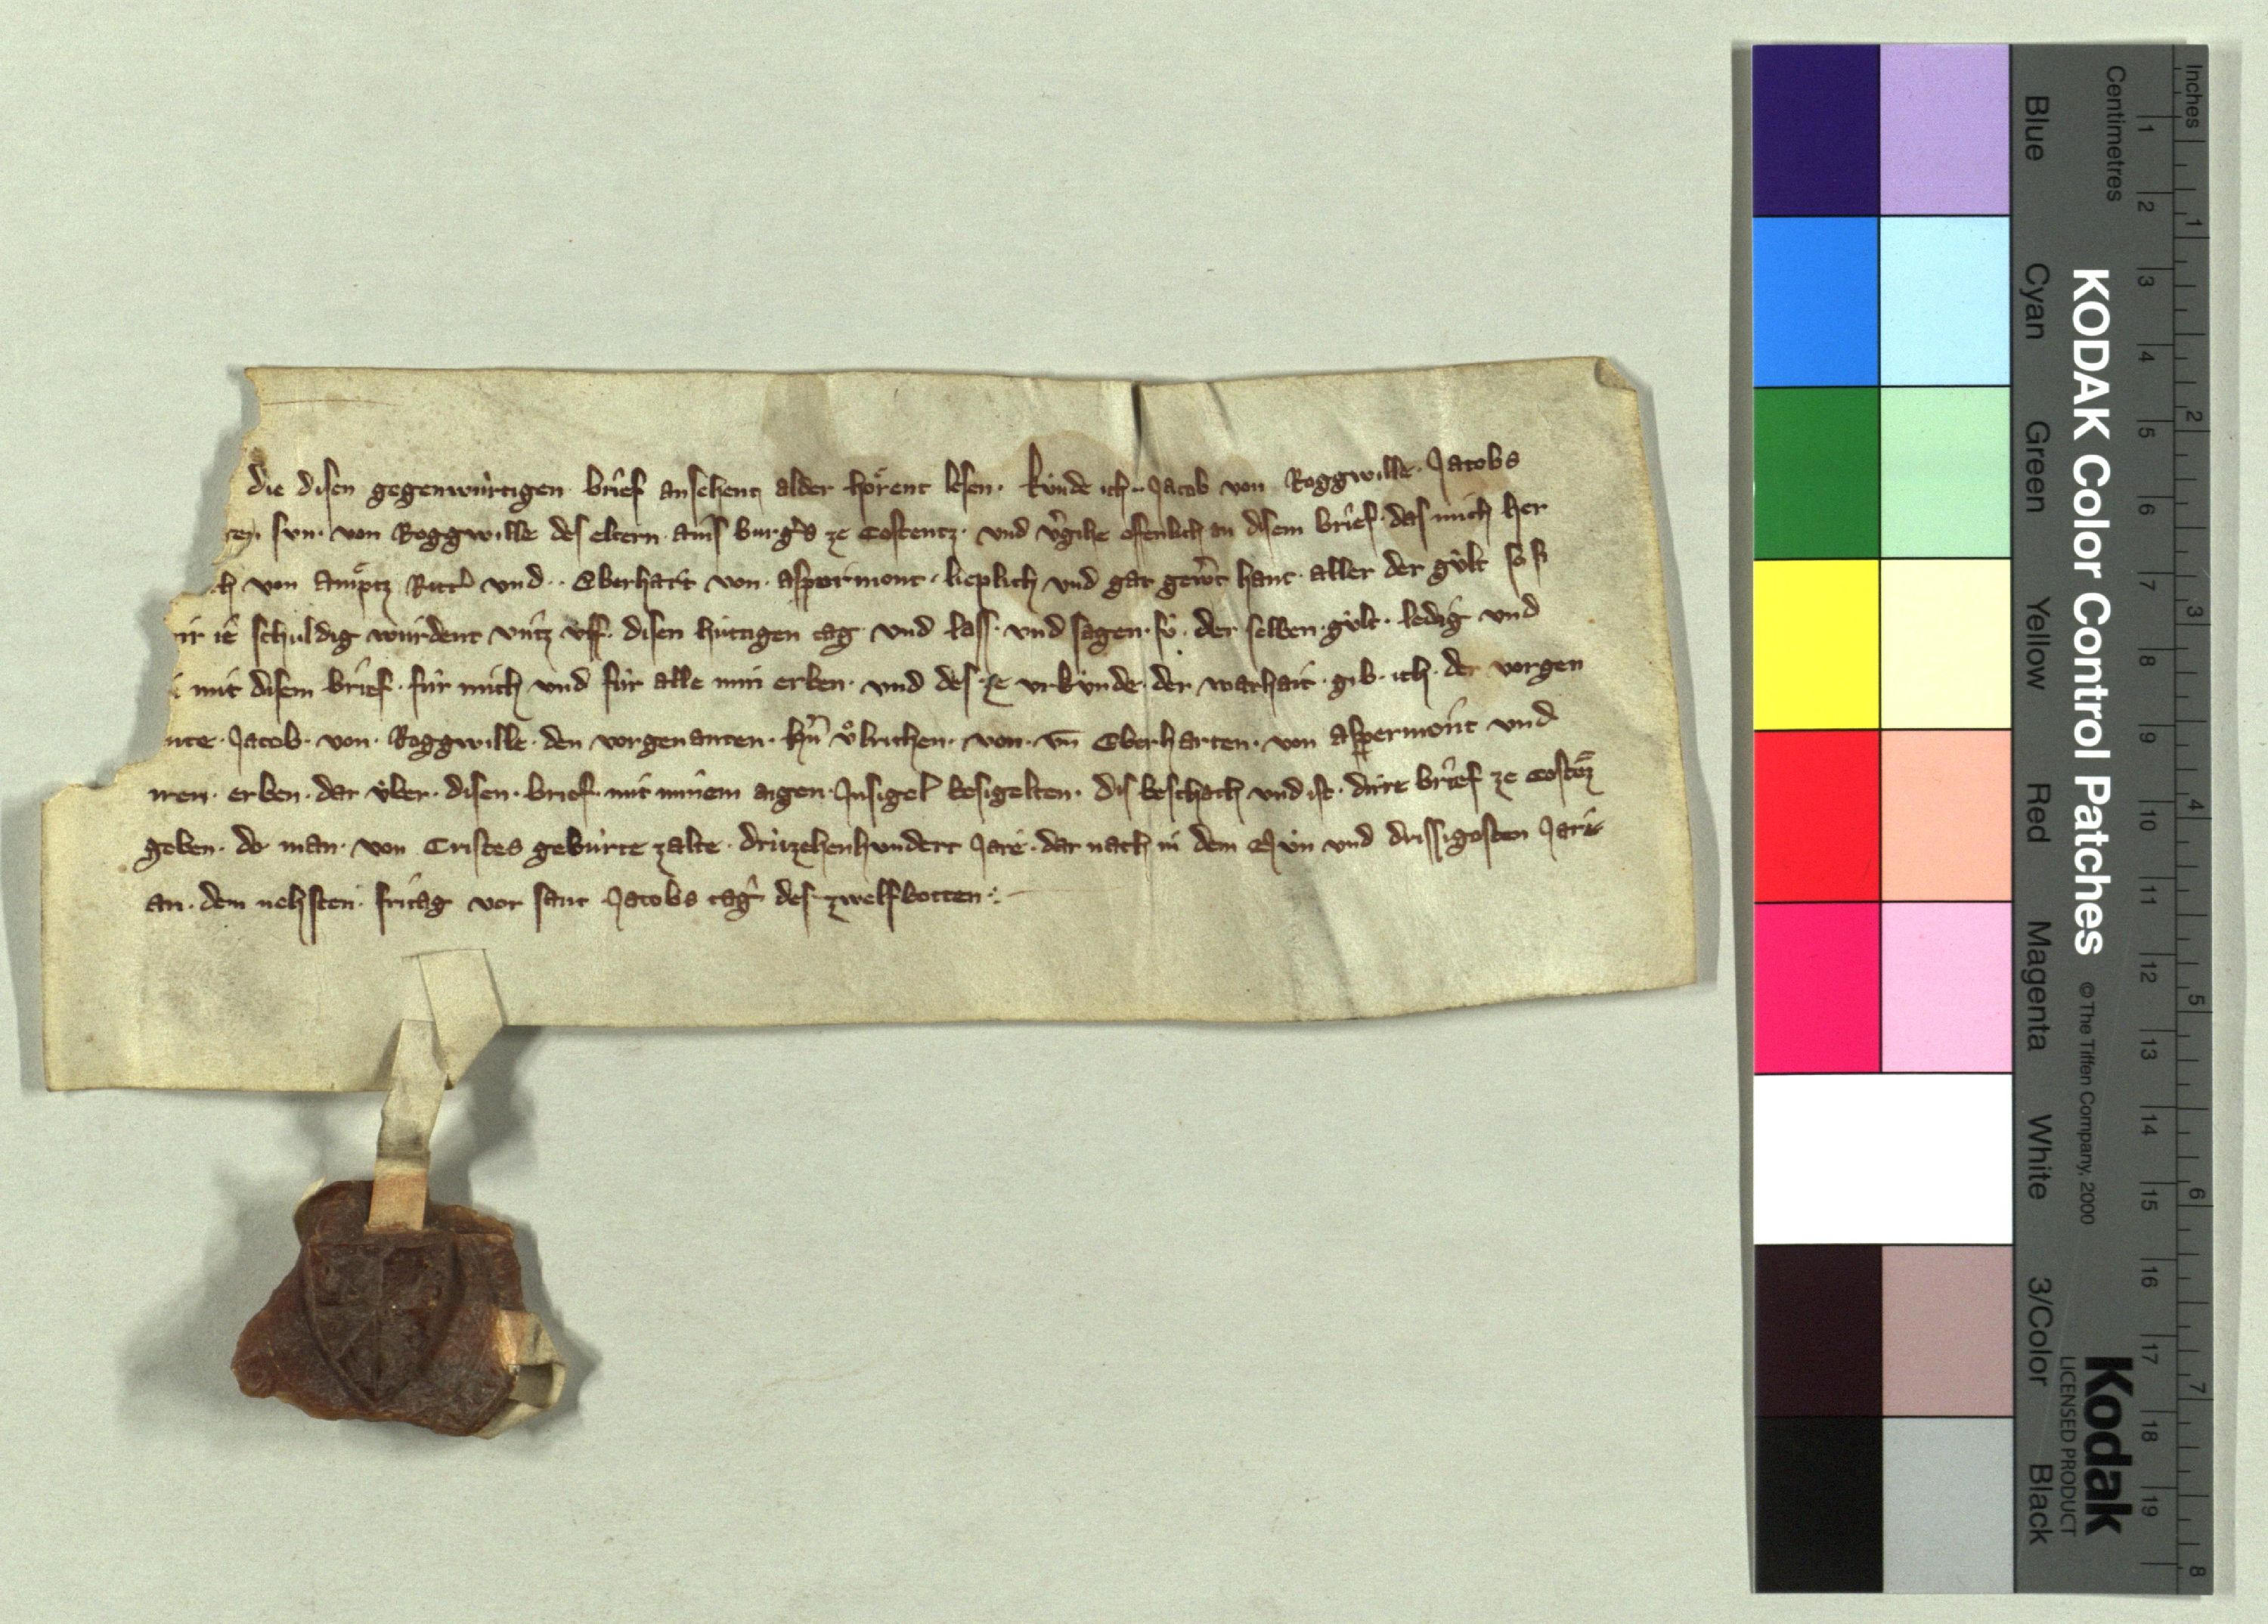 die disen gegenwùrtigen brief ansehent alder hoͤrent lesen. kùnde ich Jacob von Roggwille. Jacobs
ren. svn. von Roggwille des eltern ains burg̾s ze Costentz. vnd v̾gihe offenlich an disem brief. das mich her
ch von amptz Ritt̾ vnd .. Eberhart von aspermont. lieplich vnd gar gew̾t hant. aller der gùlt so si
ir ie schuldig wurdent vntz vff. disen hùtigen tag vnd lass. vnd sagen. sù. der selben. gùlt. ledig vnd
mit disem brief. fùr mich vnd fùr alle min erben. vnd des ze vrkùnde. der warhait. gib. ich. der vorgen
nte. Jacob. von. Roggwille. den vorgenanten. h̾n vͦlrichen. von. vn̄ Eberharten. von aspermont vnd
iren. erben. dar ùber. disen. brief. mit minem aigen. Jnsigel besigelten. dis beschach vnd ist. dirre brief ze Costēz
geben. do man. von Cristes gebùrte zalte. drùzehenhvndert Jare. dar nach in dem Nùn vnd drissigosten Jare
an. dem nehsten. fritag vor sant Jacobs tag des zwelfbotten.
Inches
Centimetres
1 2 3 4 5 6 7 8 9 10 11 12 13 14 15 16 17 18 19
1 2 3 4 5 6 7 8
KODAK Color Control Patches
© The Tiffen Company, 2000
Kodak
LICENSED PRODUCT
Blue Cyan Green Yellow Red Magenta White 3/Color Black